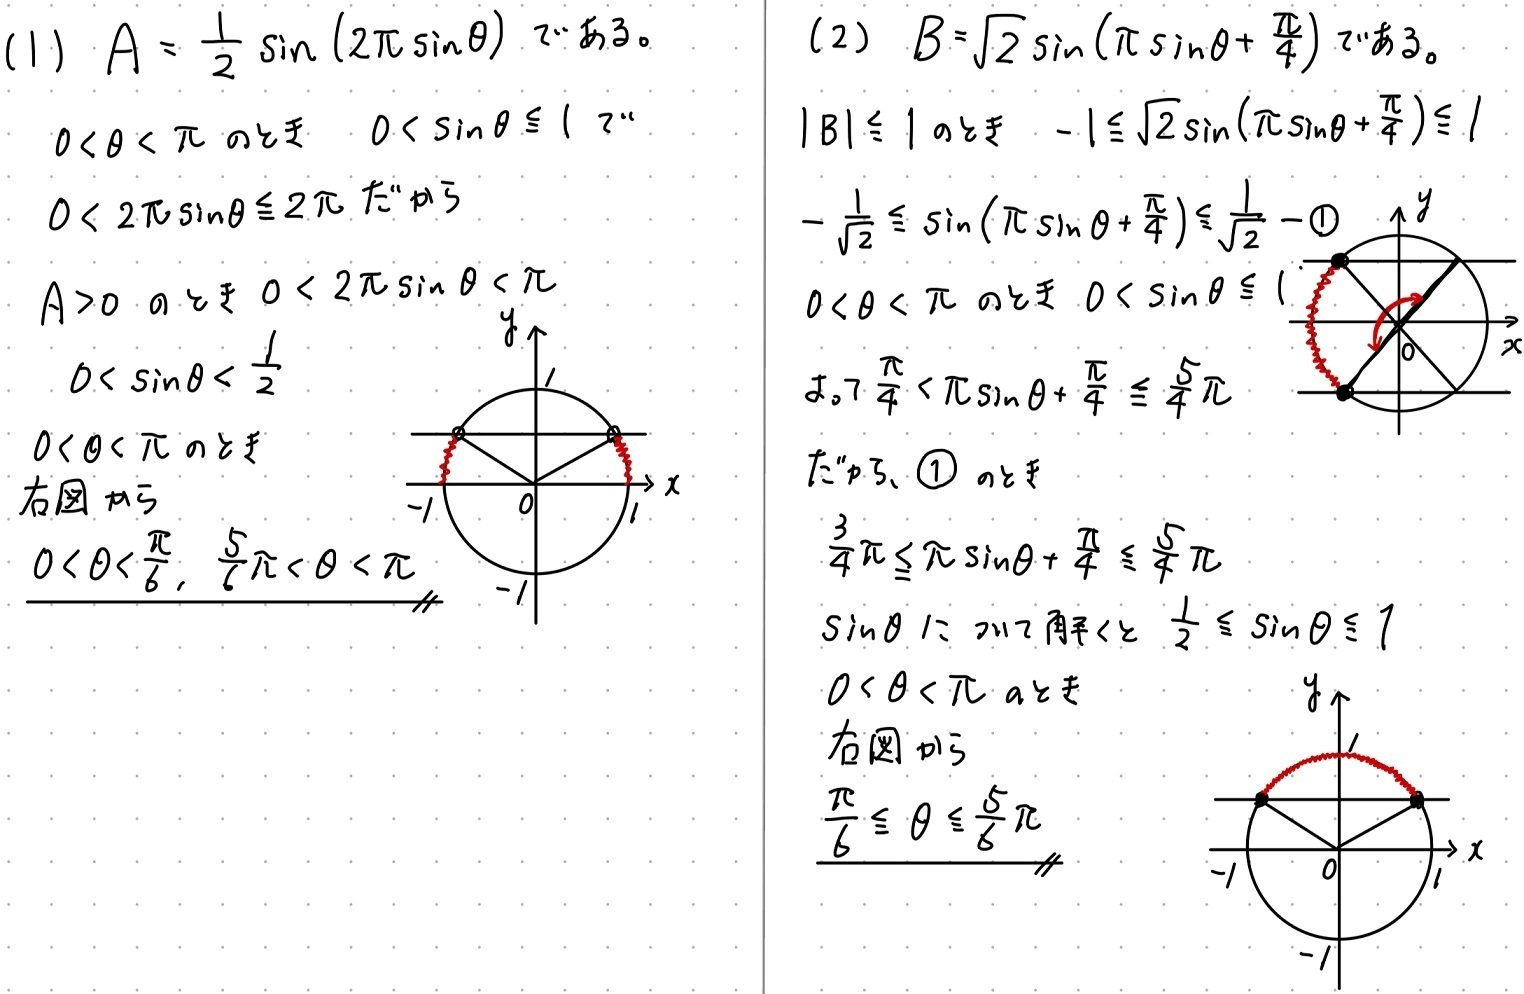 (1) A = 1/2 sin(2π sinθ) である。
0<θ<π のとき 0<sinθ≦1 で
0<2πsinθ≦2π だから
A>0 のとき 0<2πsinθ<π
0<sinθ<1/2
0<θ<π のとき
右図 から
0<θ<π/6, 5/6π<θ<π
y
1
x
-1
0
1
-1
(2) B=√2 sin(π sinθ+π/4) である。
|B|≦1 のとき -1≦√2 sin(πsinθ+π/4)≦1
-1/√2≦sin(πsinθ+π/4)≦1/√2 -①
0<θ<π のとき 0<sinθ≦1
よって π/4<πsinθ+π/4≦5/4π
だから、① のとき
3/4π≦πsinθ+π/4≦5/4π
sinθ について解くと 1/2≦sinθ≦1
0<θ<π のとき
右図から
π/6≦θ≦5/6π
y
0
x
y
1
x
-1
0
1
-1